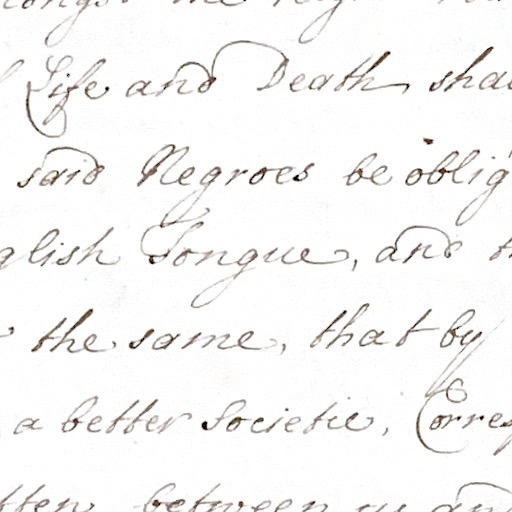 the
Life and Death shal
said Negroes be oblig'
glish Tongue, and th
the same, that by
a better Societie, Corres
tten between us and